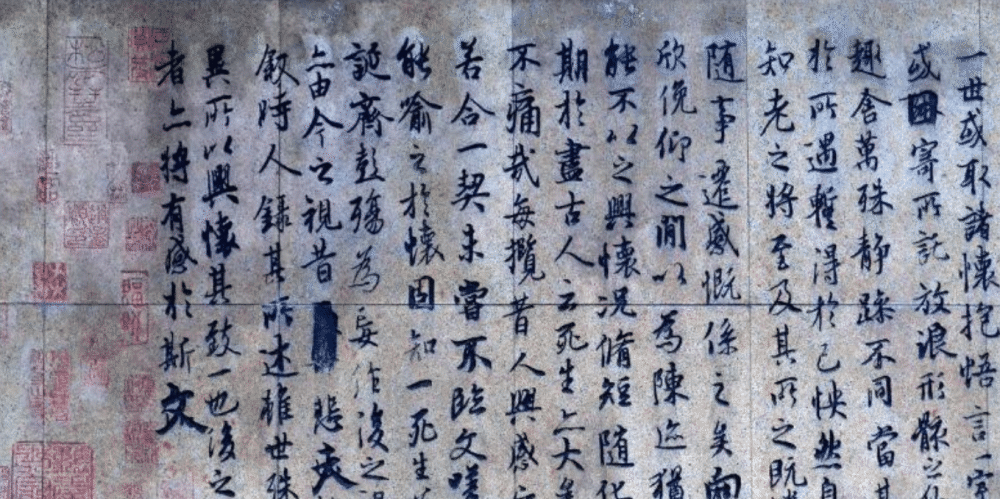 一世或取諸懷抱悟言一室
或因寄所託放浪形骸之
趣舍萬殊靜躁不同當其
於所遇暫得於己怏然自
知老之將至及其所之既
隨事遷感慨係之矣向
欣俛仰之閒以為陳迹猶
能不以之興懷況脩短隨化
期於盡古人云死生亦大矣
不痛哉每攬昔人興感
若合一契未嘗不臨文嗟
能喻之於懷固知一死生
誕齊彭殤為妄作後之
亦由今之視昔悲夫
敘時人錄其所述雖世殊
異所以興懷其致一也後之
者亦將有感於斯文